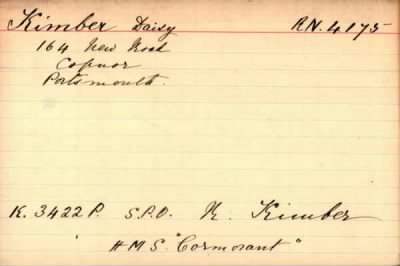 Kimber Daisy R.N. 4175
164 New Road
Copnor
Portsmouth.
K. 3422 P. S.P.O. K. Kimber
"H M S "Cormorant"